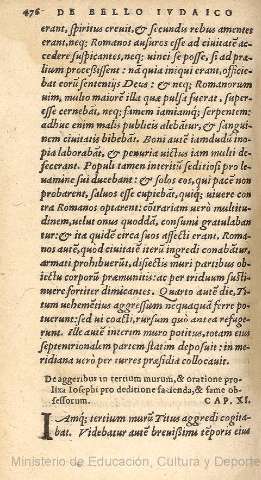 476 DE BELLO IVDAICO
erant, spiritus creuit, & secundis rebus amentes
erant, neq; Romanos ausuros esse ad ciuitatē ac
cedere suspicantes, neq; uinci se posse, si ad præ
lium processissent: nā quia iniqui erant, officie
bat corū sententijs Deus: & neq; Romanorum
uim, multo maiorē illa quæ pulsa fuerat, super-
esse cernebāt, neq; famem iamiamq; serpentem:
adhuc enim malis publicis alebātur, & sangui-
nem ciuitatis bibebāt. Boni autē iamdudū ino
pia laborabāt, & penuria uictus iam multi de-
fecerant. Populi tamen interitū seditiosi pro le-
uamine sui ducebant: & solos eos, qui pacē non
probarent, saluos esse cupiebāt, quiq; uiuere con
tra Romanos optarent: cōtrariam uerò multitu-
dinem, uelut onus quoddā, consumi gratulaban
tur: & ita quidē circa suos affecti erant. Romā-
nos autē, quòd ciuitatē iterū ingredi conabātur,
armati prohibuerūt, disiectis muri partibus ob-
iectu corporū præmunitis: ac per triduum fusti-
nuere fortiter dimicantes. Quarto autē die, Ti-
tum uehemētius aggressum nequaquā ferre po-
tuerunt: sed ui coacti, rursum quò antea refuge-
runt. Ille autē interim muro potitus, totam eius
septentrionalem partem statim deposuit: in me-
ridiana uerò per turres præsidia collocauit.
De aggeribus in tertium murum, & oratione pro
lixa Iosephi pro deditione facienda, & fame ob-
sessorum. CAP. XI.
Iamq; tertium murū Titus aggredi cogita
bat. Videbatur autē breuissimū tēporis eius
Ministerio de Educación, Cultura y Deporte